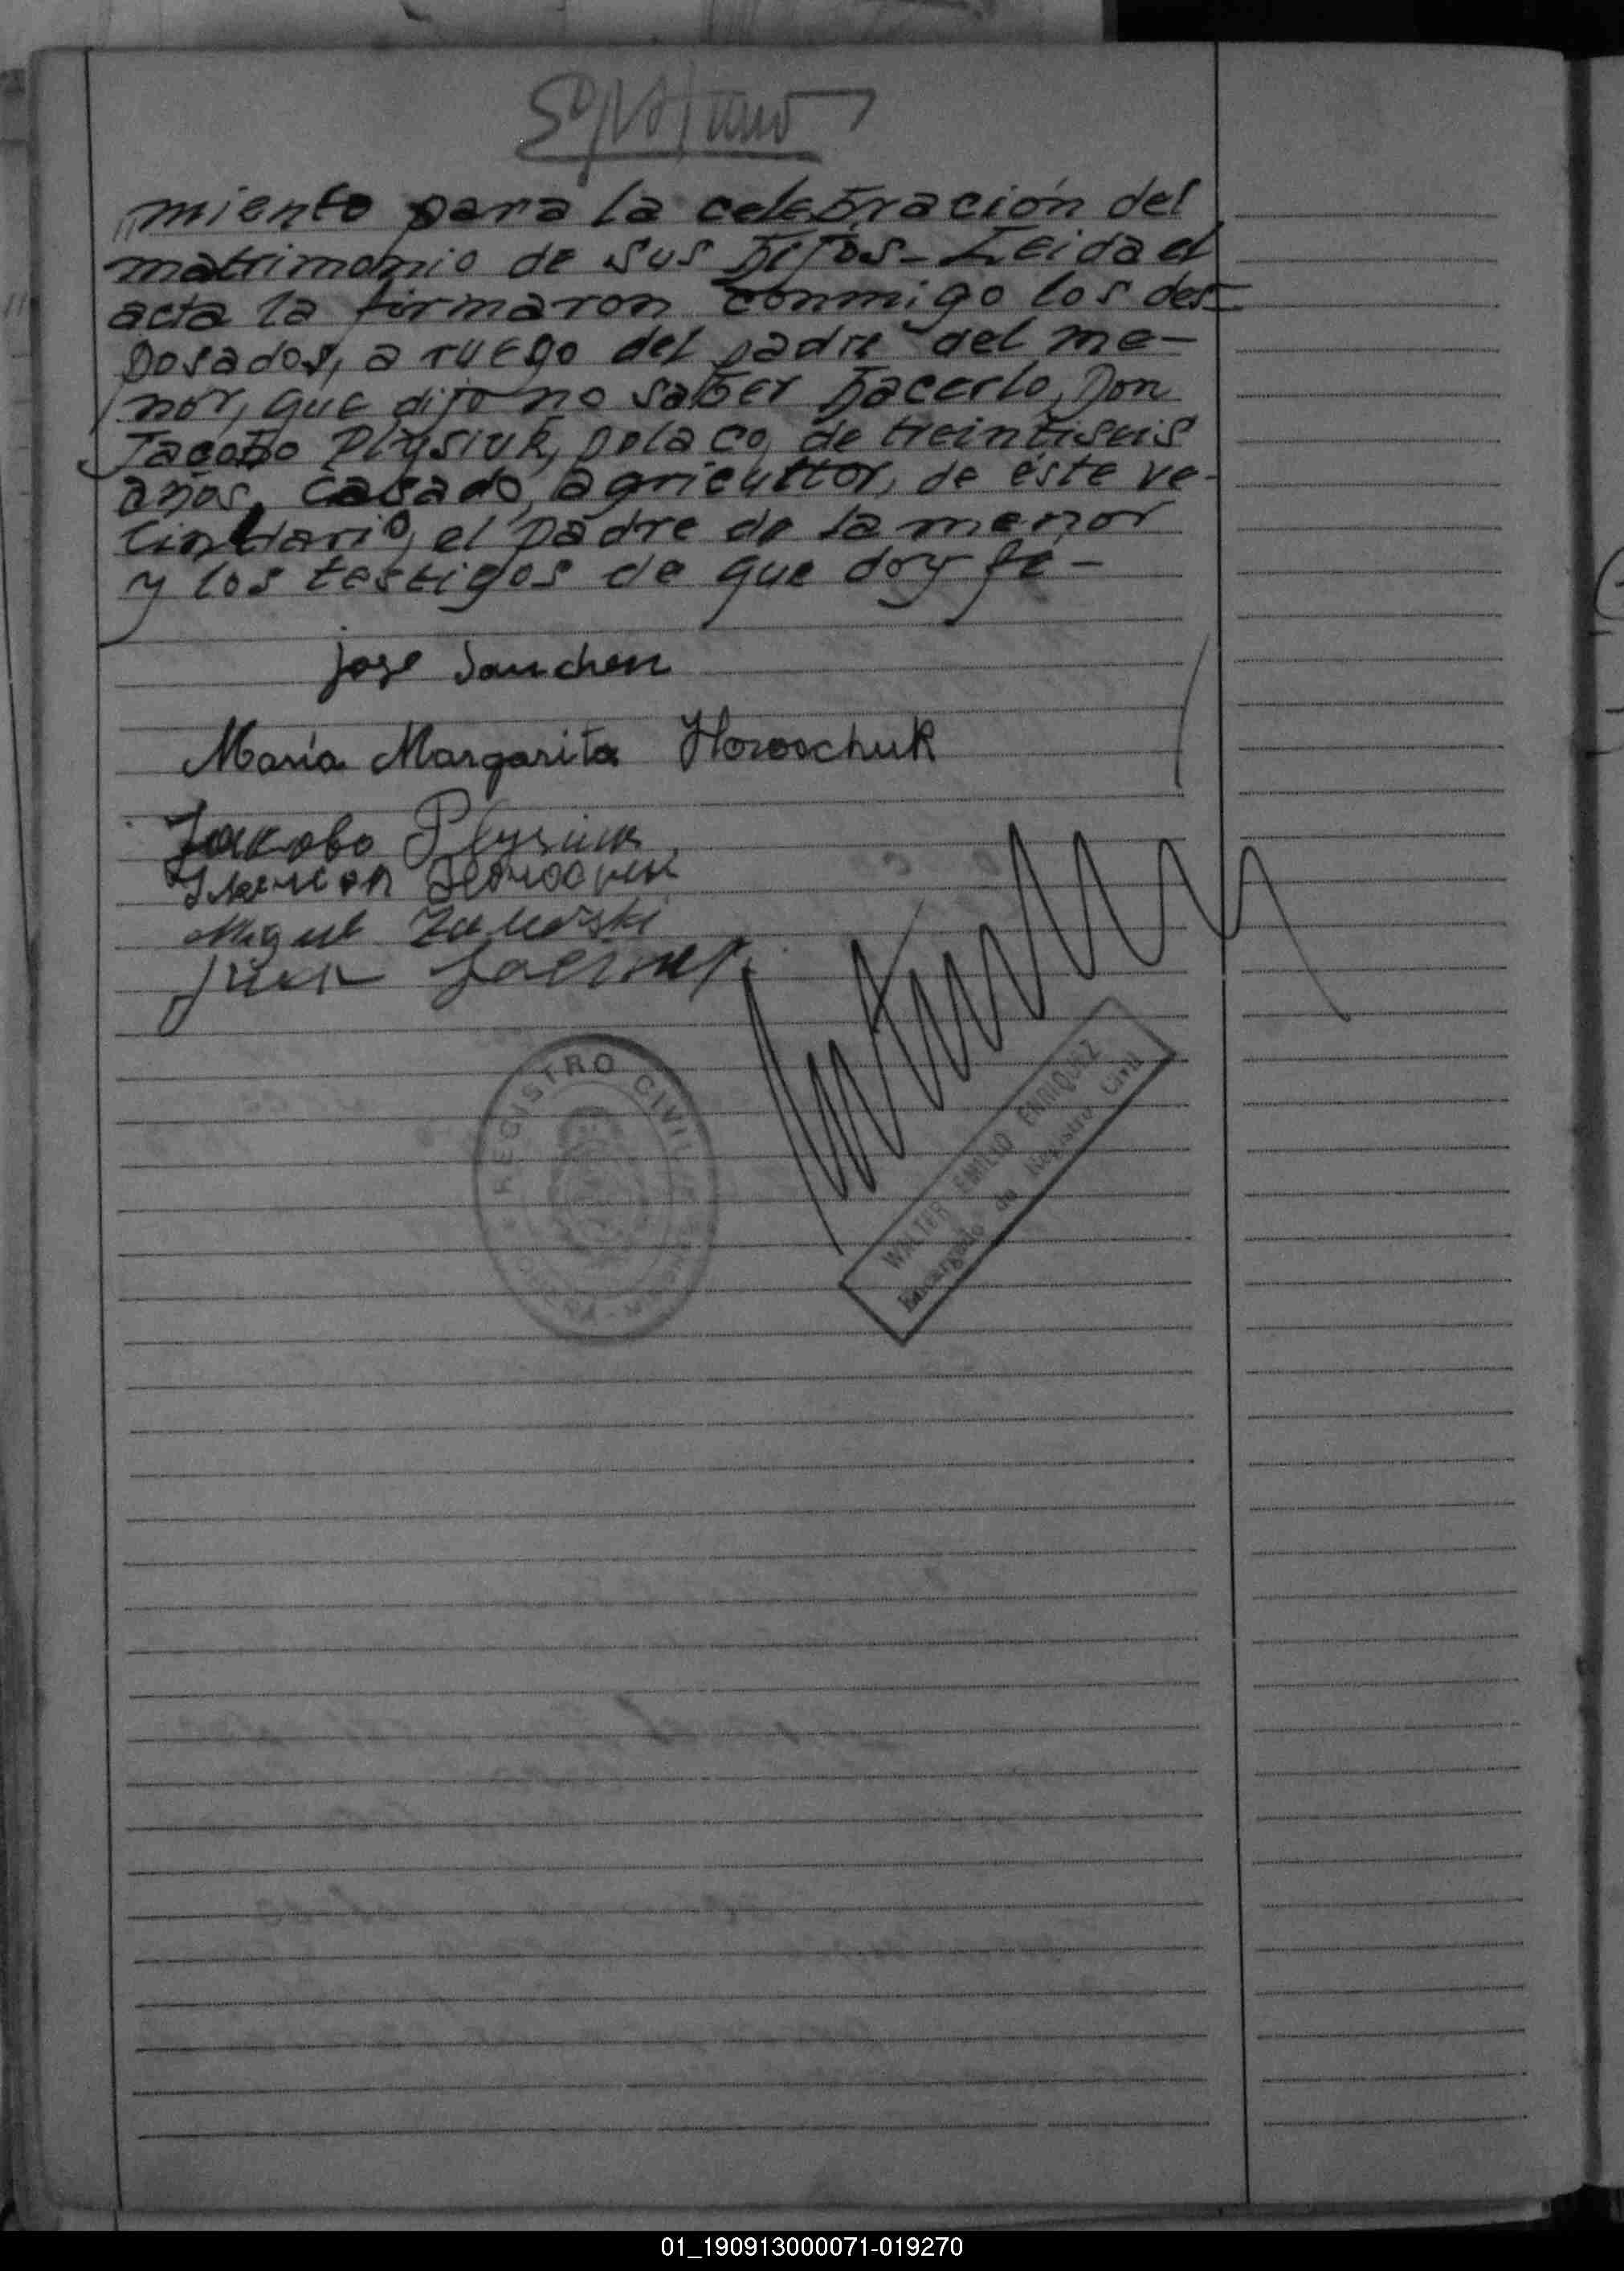 miento para la celebración del
matrimonio de sus hijos - Leida el
acta la firmaron conmigo los des-
posados, a ruego del padre del me-
nor, que dijo no saber hacerlo, Don
Jacobo Plysiuk, polaco, de treintiseis
años, casado, agricultor, de éste ve-
cindario, el padre de la menor
y los testigos de que doy fe -
Jose Sanchen
María Margarita Horoschuk
Jakobo Plysiuk
Miguel
Juan
REGISTRO CIVIL
WALTER EMILIO ENRIQUEZ
Encargado de Registro Civil
01_190913000071-019270